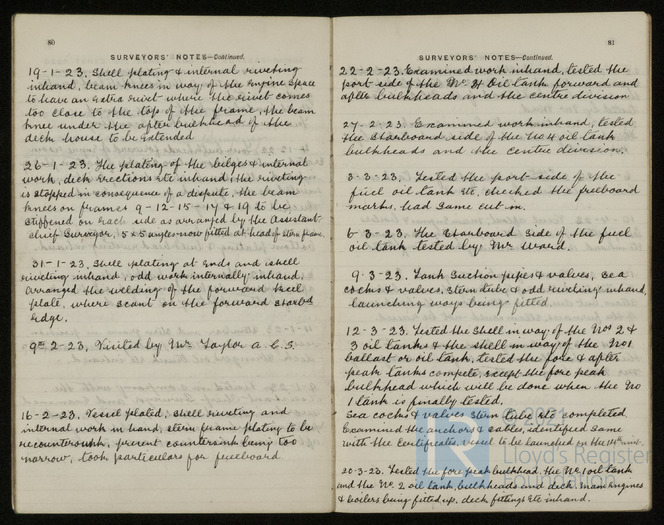 80
SURVEYORS' NOTES—Continued.
19-1-23. Shell plating & internal riveting
inhand, beam knees in way of the Engine space
to have an extra rivet where the rivet comes
too close to the top of the frame, the beam
knee under the after bulkhead of the
deck house to be extended
26-1-23. The plating of the belges & internal
work, deck erections etc inhand, the riveting
is stopped in consequence of a dispute, the beam
knees on frames 9-12-15-17 & 19 to be
stiffened on each side as arranged by the Assistant
Chief Surveyor, 5 x 5 angles now fitted at head of stern frame.
31-1-23. Shell plating at ends and shell
riveting inhand, odd work internally inhand.
arranged the welding of the forward keel
plate, where scant on the forward starbd
edge.
9th 2-23. Visited by Mr Taylor a.C.S.
16-2-23. Vessel plated, shell riveting and
internal work in hand, stern frame plating to be
recountersunk, present countersink being too
narrow, took particulars for freeboard.
81
SURVEYORS' NOTES—Continued.
22-2-23. Examined work inhand, tested the
port side of the No 4 Oil tank forward and
after bulkheads and the centre division
27-2-23. Examined work inhand, tested
the starboard side of the No 4 oil tank
bulkheads and the centre division.
3-3-23. Tested the port side of the
fuel oil tank etc, checked the freeboard
marks, had same cut in.
6-3-23. The Starboard side of the fuel
oil tank tested by Mr Ward.
9-3-23. Tank suction pipes & valves, sea
cocks & valves, stern tube & odd riveting inhand,
launching ways being fitted
12-3-23. Tested the shell in way of the Nos 2 &
3 oil tanks & the shell in way of the No 1
ballast or oil tank, tested the fore & after
peak tanks compete, except the fore peak
bulkhead which will be done when the No
1 tank is finally tested.
Sea cocks & valves stern tube etc completed
Examined the anchors & cables, identified same
with the certificates, vessel to be launched on the 14th inst.
20-3-23. Tested the fore peak bulkhead, the No 1 oil tank
and the No. 2 oil tank, bulkheads and deck. Main engines
& boilers being fitted up, deck fittings etc inhand.
Lloyd's Register
Foundation